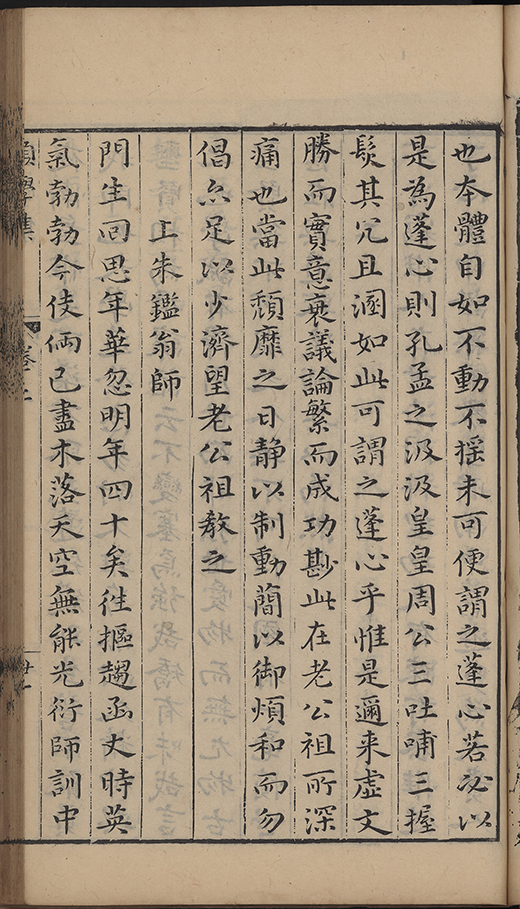 也本體自如不動不搖未可便謂之蓬心若必以
是為蓬心則孔孟之汲汲皇皇周公三吐哺三握
髮其冗且溷如此可謂之蓬心乎惟是邇来虛文
勝而實意衰議論繁而成功尠此在老公祖所深
痛也當此頹靡之日静以制動蕳以御煩和而勿
倡亦足以少濟望老公祖教之
上朱鑑翁師
門生回思年華忽明年四十矣徃摳趨函丈時英
氣勃勃今伎倆已盡木落天空無能光衍師訓中